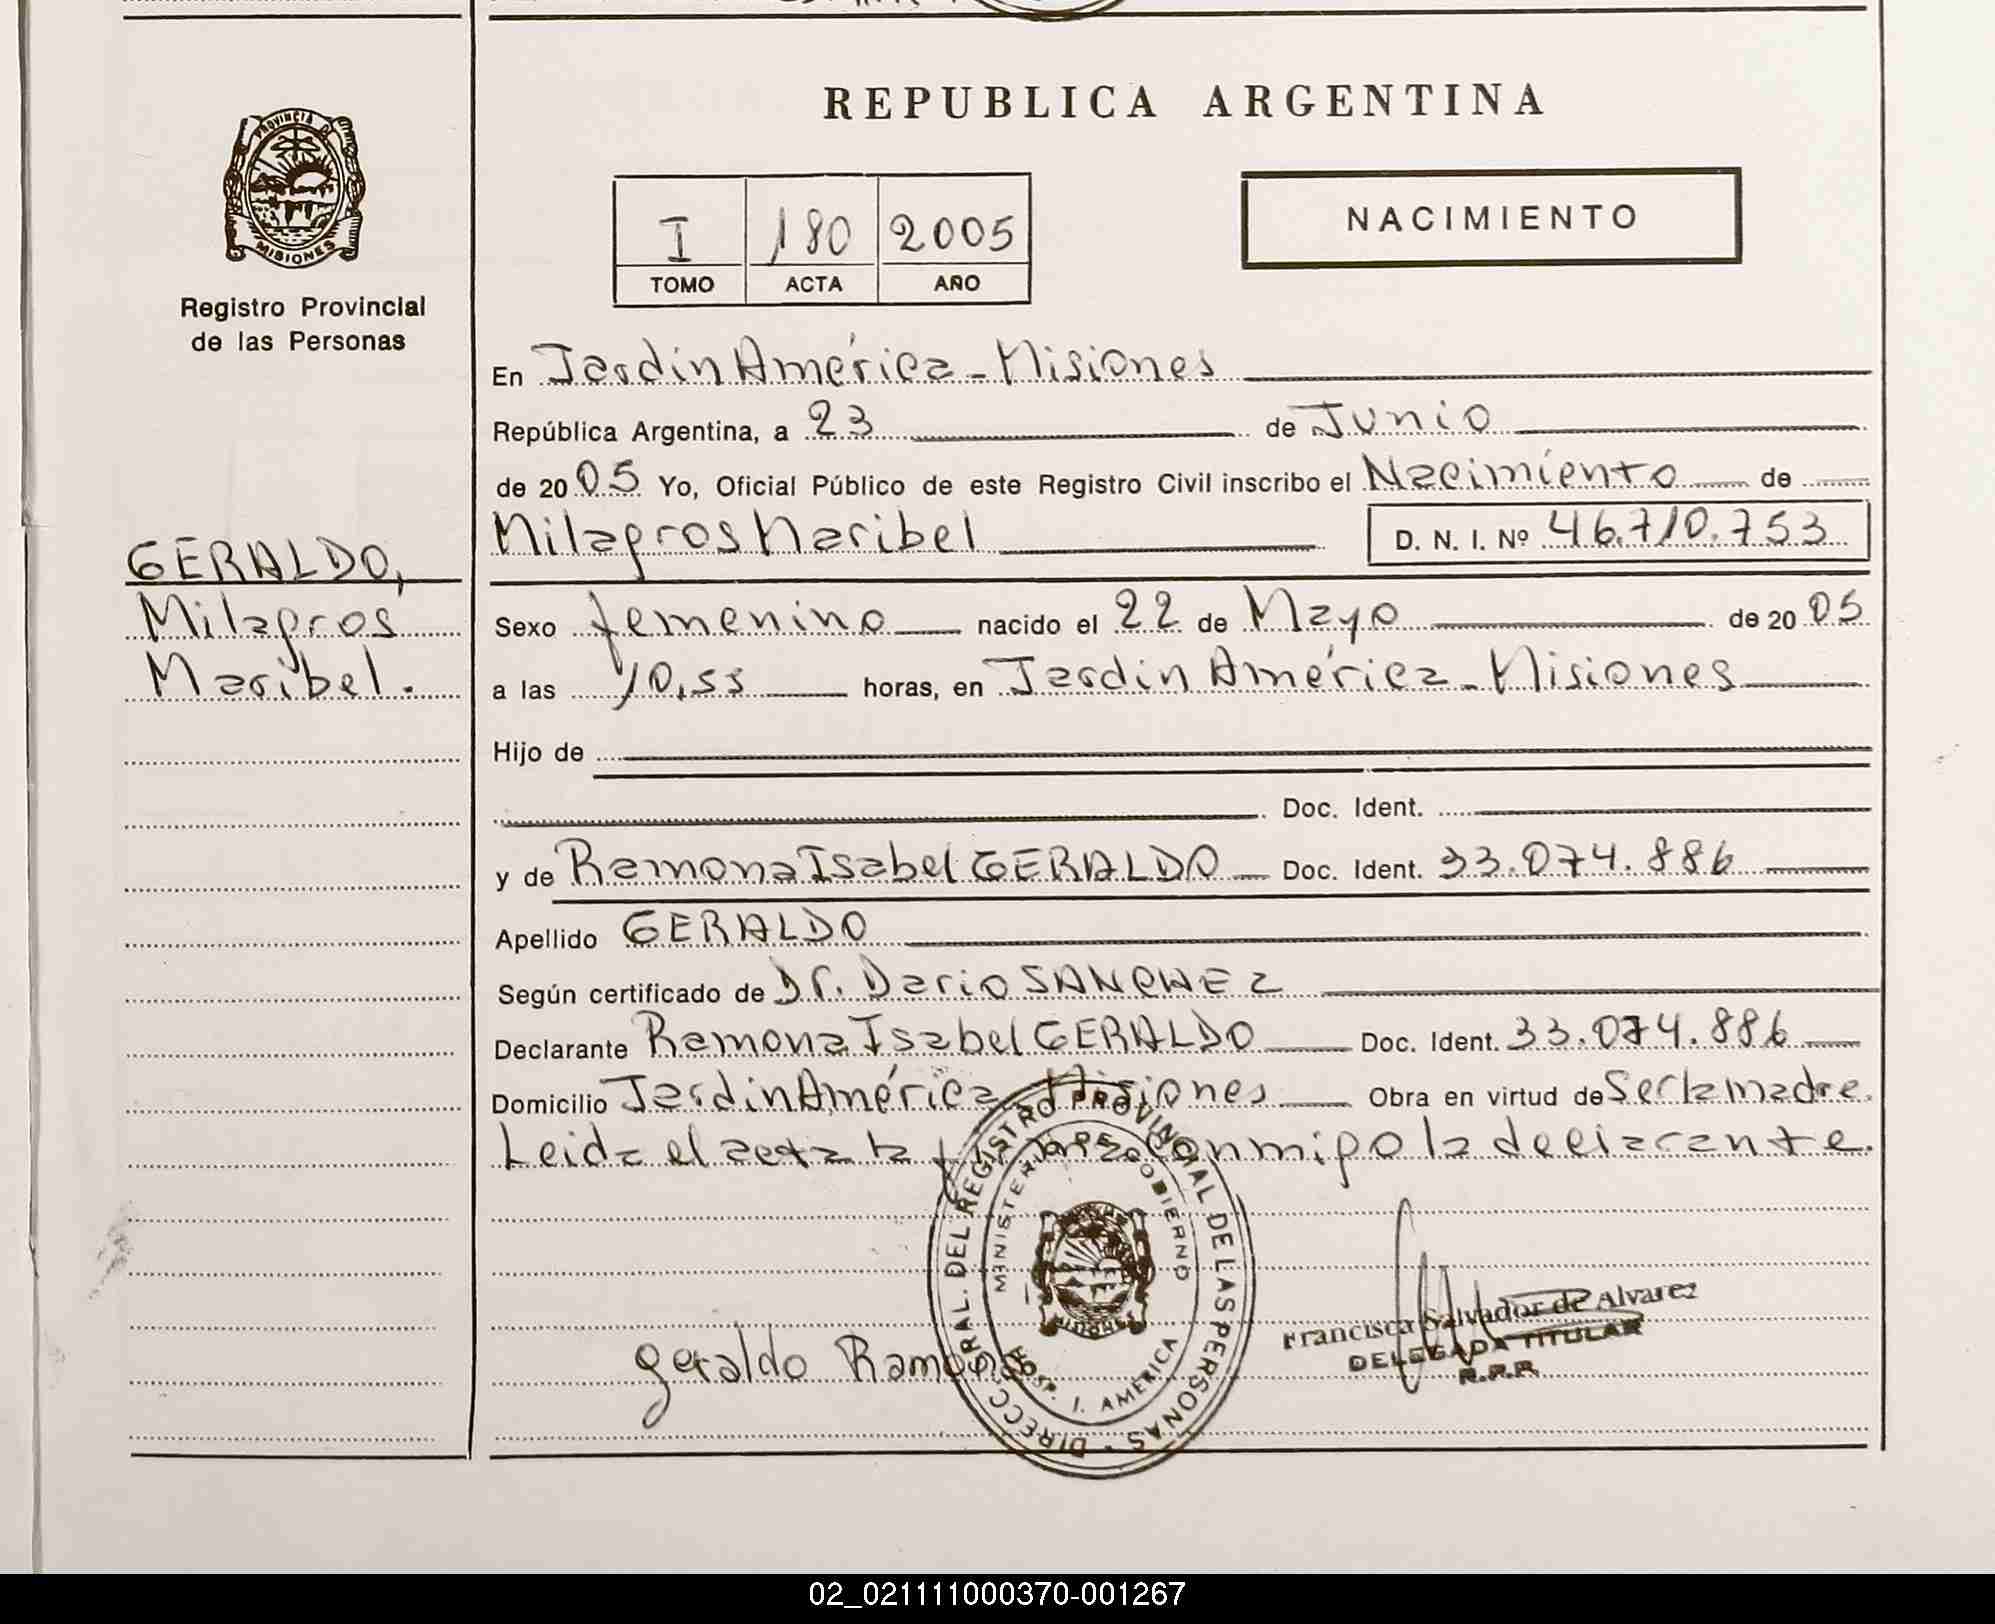 REPUBLICA ARGENTINA
PROVINCIA DE
MISIONES
Registro Provincial
de las Personas
I 180 2005
TOMO ACTA AÑO
NACIMIENTO
GERALDO,
Milagros
Maribel.
En Jardín América - Misiones
República Argentina, a 23 de Junio
de 2005 Yo, Oficial Público de este Registro Civil inscribo el Nacimiento de
Milagros Maribel D. N. I. Nº 46.710.753
Sexo femenino nacido el 22 de Mayo de 2005
a las 10,55 horas, en Jardín América - Misiones
Hijo de
Doc. Ident.
y de Ramona Isabel GERALDO Doc. Ident. 33.074.886
Apellido GERALDO
Según certificado de Dr. Dario SANCHEZ
Declarante Ramona Isabel GERALDO Doc. Ident. 33.074.886
Domicilio Jardín América Misiones Obra en virtud de Ser la madre.
Leida el acta la conmigo la declarante.
geraldo Ramona
DIRECC. GRAL. DEL REGISTRO PROVINCIAL DE LAS PERSONAS
MINISTERIO DE GOBIERNO
MISIONES
HOSP. J. AMERICA
Francisca Salvador de Alvarez
DELEGADA TITULAR
R.P.P.
02_021111000370-001267